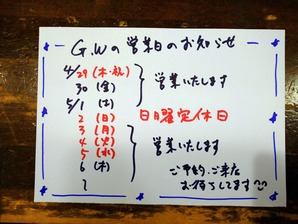 G.Wの営業日のお知らせ
4/29(木・祝)
30(金)
5/1(土)
営業いたします
2(日)
日曜定休日
3(月)
4(火)
5(水)
6(木)
営業いたします
ご予約、ご来店
お待ちしてます